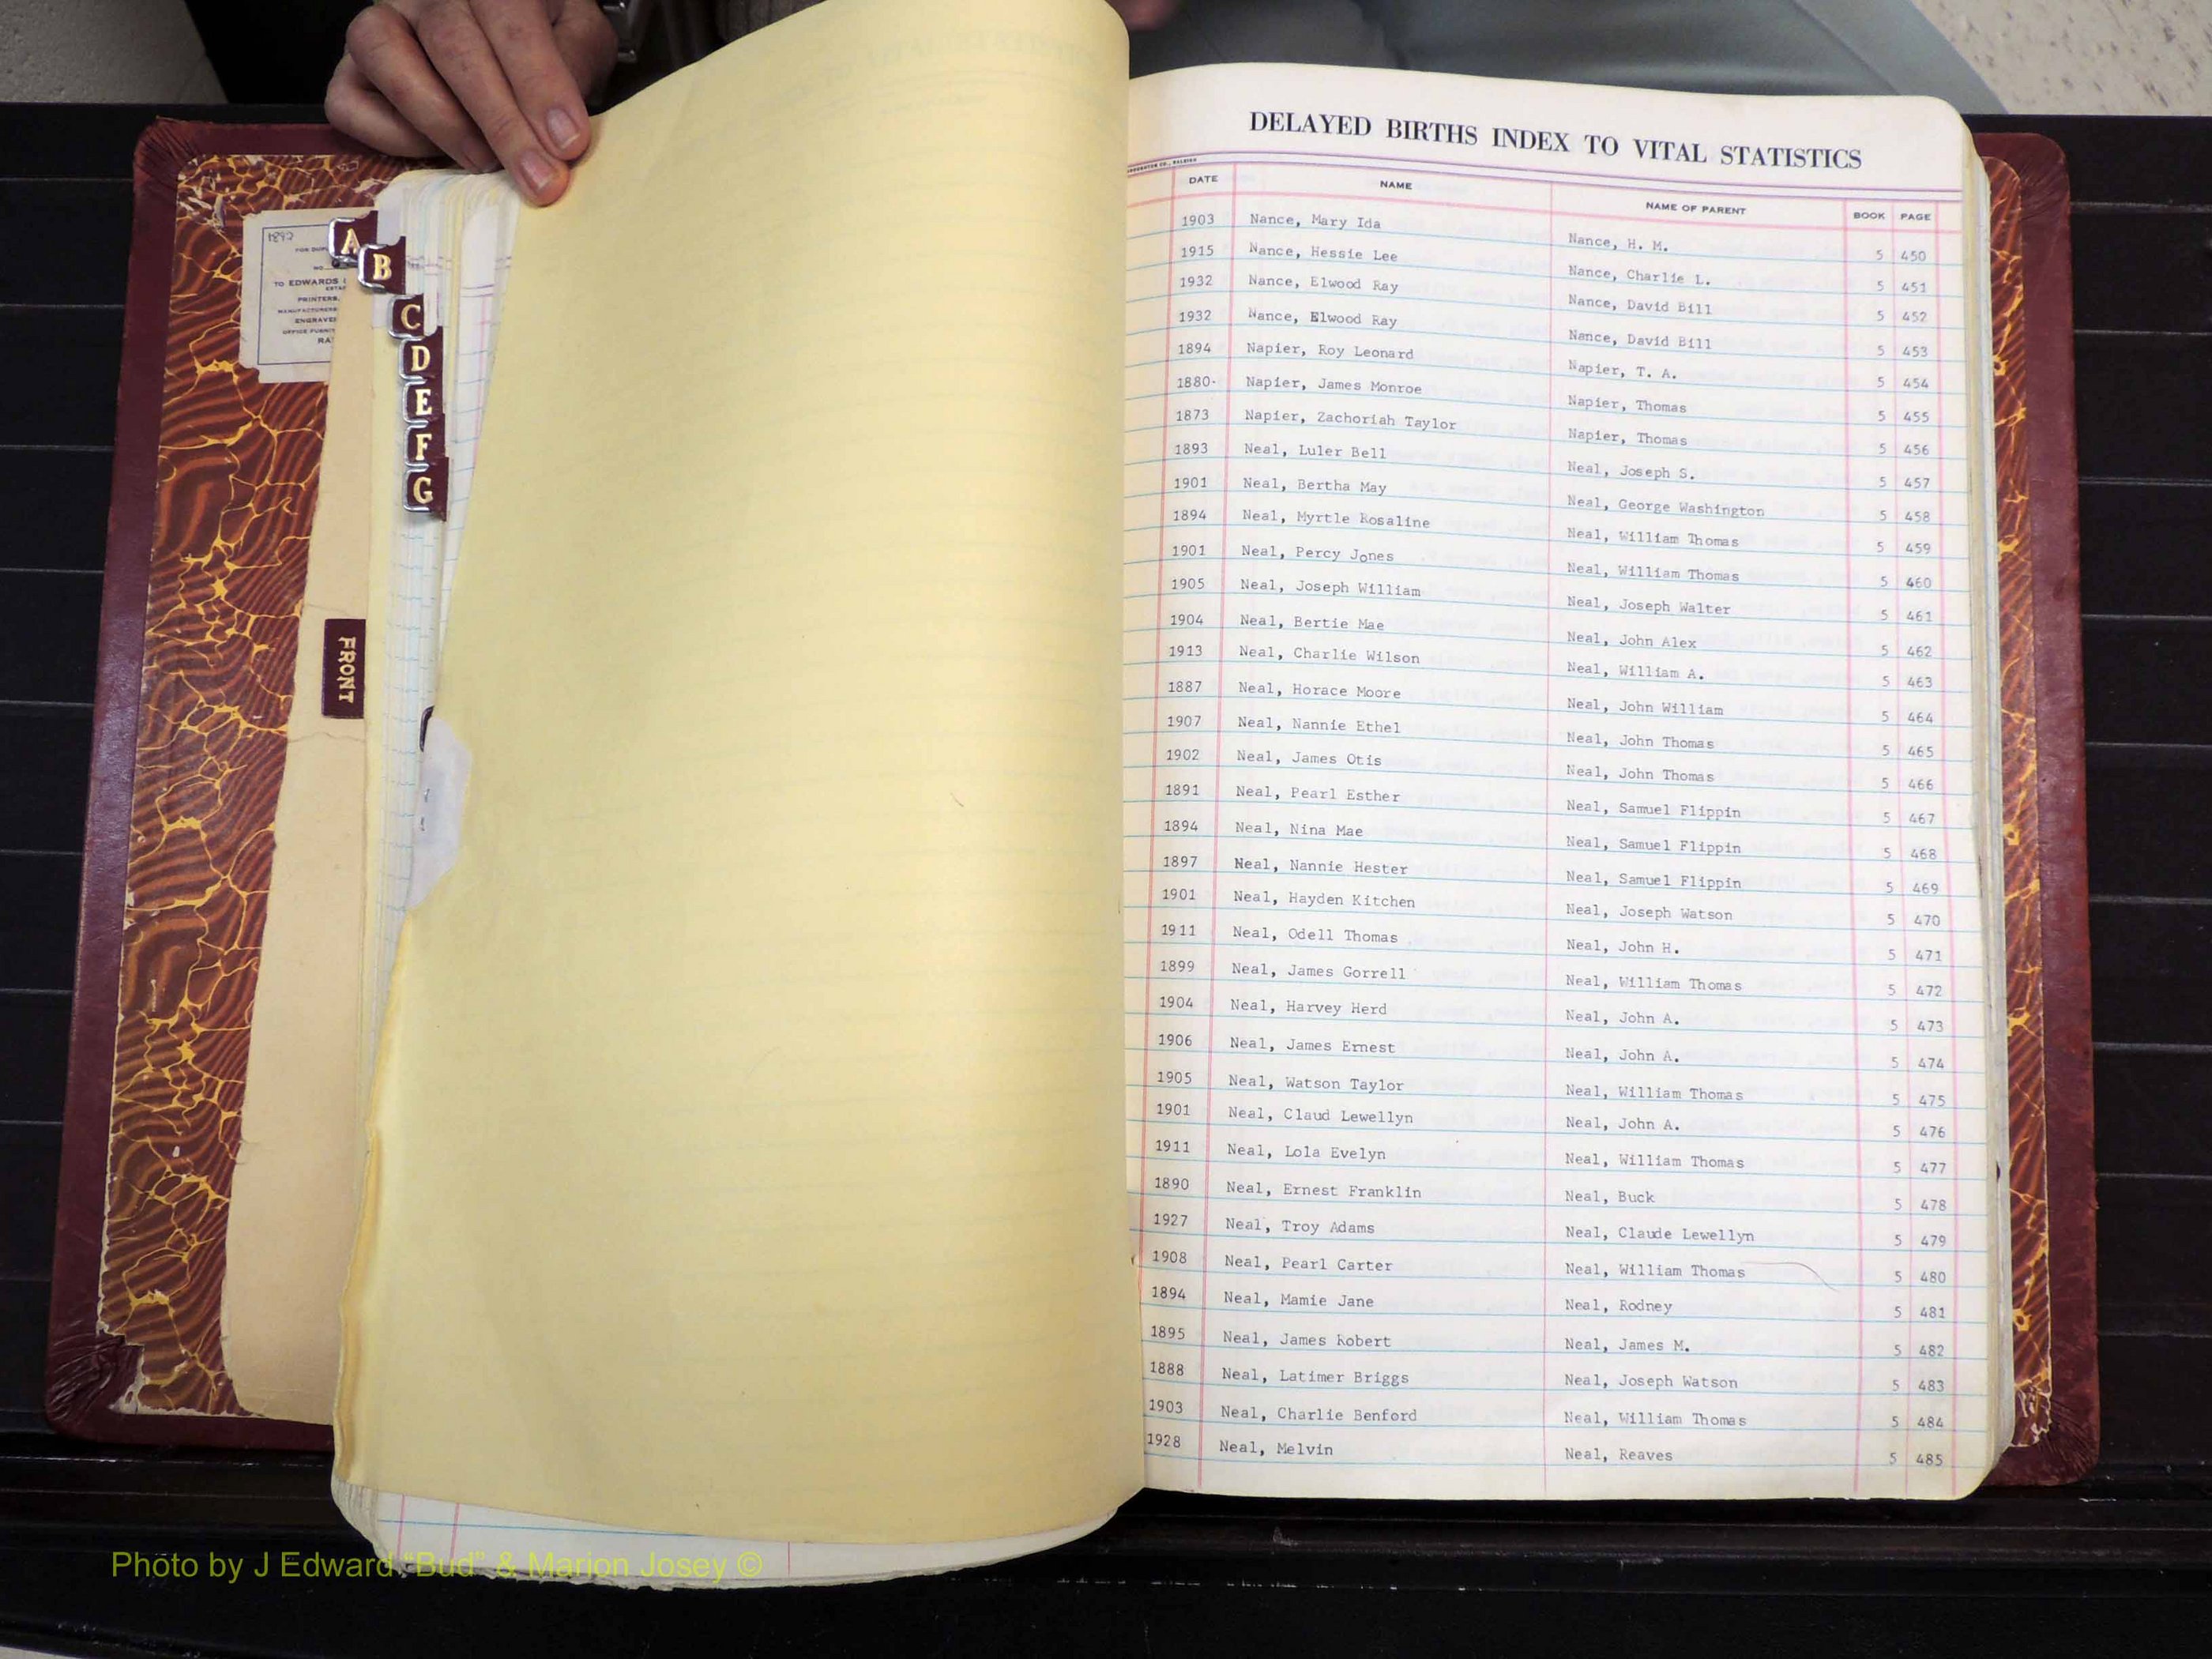 1892
A
B
TO EDWARDS
PRINTERS,
C
D
E
F
G
FRONT
DELAYED BIRTHS INDEX TO VITAL STATISTICS
DATE NAME NAME OF PARENT BOOK PAGE
1903 Nance, Mary Ida Nance, H. M. 5 450
1915 Nance, Hessie Lee Nance, Charlie L. 5 451
1932 Nance, Elwood Ray Nance, David Bill 5 452
1932 Nance, Elwood Ray Nance, David Bill 5 453
1894 Napier, Roy Leonard Napier, T. A. 5 454
1880- Napier, James Monroe Napier, Thomas 5 455
1873 Napier, Zachoriah Taylor Napier, Thomas 5 456
1893 Neal, Luler Bell Neal, Joseph S. 5 457
1901 Neal, Bertha May Neal, George Washington 5 458
1894 Neal, Myrtle Rosaline Neal, William Thomas 5 459
1901 Neal, Percy Jones Neal, William Thomas 5 460
1905 Neal, Joseph William Neal, Joseph Walter 5 461
1904 Neal, Bertie Mae Neal, John Alex 5 462
1913 Neal, Charlie Wilson Neal, William A. 5 463
1887 Neal, Horace Moore Neal, John William 5 464
1907 Neal, Nannie Ethel Neal, John Thomas 5 465
1902 Neal, James Otis Neal, John Thomas 5 466
1891 Neal, Pearl Esther Neal, Samuel Flippin 5 467
1894 Neal, Nina Mae Neal, Samuel Flippin 5 468
1897 Neal, Nannie Hester Neal, Samuel Flippin 5 469
1901 Neal, Hayden Kitchen Neal, Joseph Watson 5 470
1911 Neal, Odell Thomas Neal, John H. 5 471
1899 Neal, James Gorrell Neal, William Thomas 5 472
1904 Neal, Harvey Herd Neal, John A. 5 473
1906 Neal, James Ernest Neal, John A. 5 474
1905 Neal, Watson Taylor Neal, William Thomas 5 475
1901 Neal, Claud Lewellyn Neal, John A. 5 476
1911 Neal, Lola Evelyn Neal, William Thomas 5 477
1890 Neal, Ernest Franklin Neal, Buck 5 478
1927 Neal, Troy Adams Neal, Claude Lewellyn 5 479
1908 Neal, Pearl Carter Neal, William Thomas 5 480
1894 Neal, Mamie Jane Neal, Rodney 5 481
1895 Neal, James Robert Neal, James M. 5 482
1888 Neal, Latimer Briggs Neal, Joseph Watson 5 483
1903 Neal, Charlie Benford Neal, William Thomas 5 484
1928 Neal, Melvin Neal, Reaves 5 485
Photo by J Edward "Bud" & Marion Josey ©